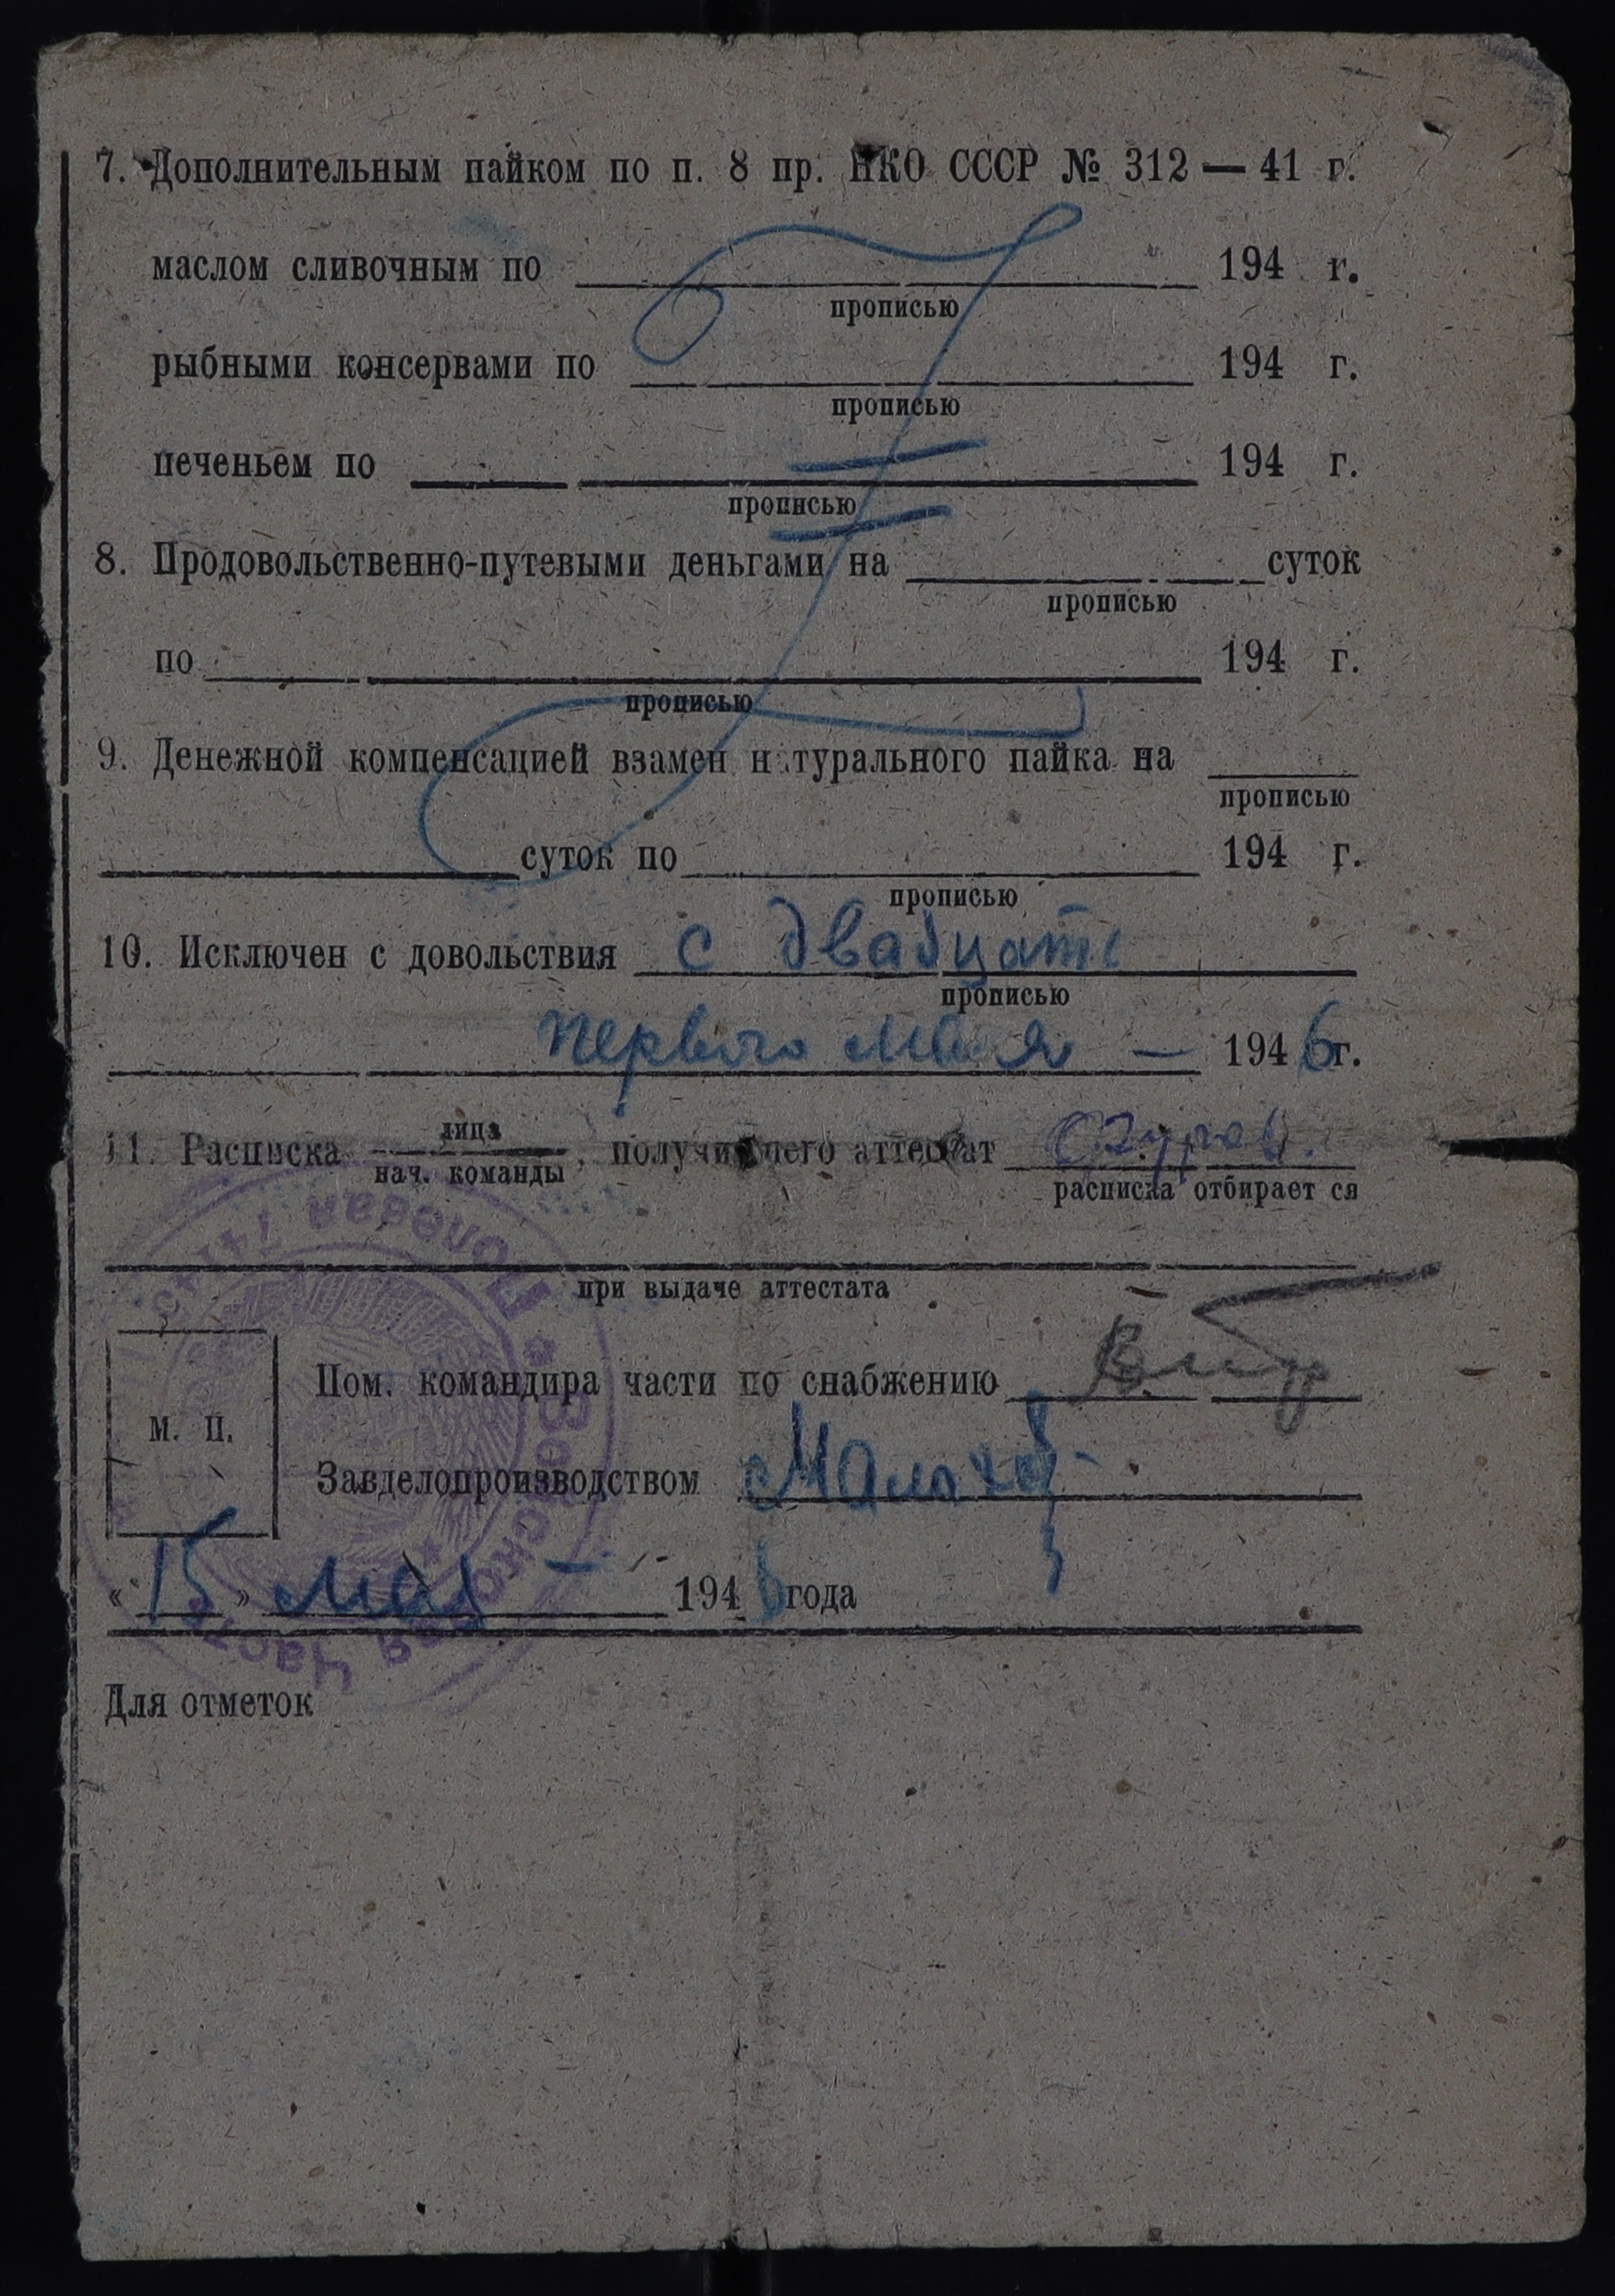 7. Дополнительным пайком по п. 8 пр. НКО СССР № 312 — 41 г.
маслом сливочным по 194 г.
прописью
рыбными консервами по 194 г.
прописью
печеньем по 194 г.
прописью
8. Продовольственно-путевыми деньгами на суток
прописью
по 194 г.
прописью
9. Денежной компенсацией взамен натурального пайка на
прописью
суток по 194 г.
прописью
10. Исключен с довольствия с двадцать
прописью
первого мая — 1946 г.
11. Расписка лица
нач. команды, получившего аттестат
расписка отбирает ся
при выдаче аттестата
Пом. командира части по снабжению
М. П.
Завделопроизводством
«15» мая — 1946 года
Для отметок
Полевая
Войсковая Часть